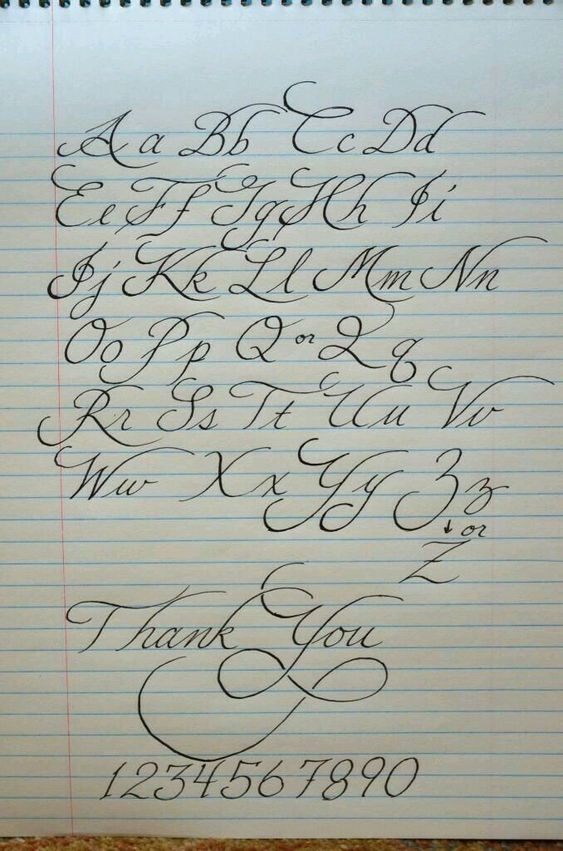 Aa Bb Cc Dd
Ee Ff Gg Hh Ii
Jj Kk Ll Mm Nn
Oo Pp Q or Q q
Rr Ss Tt Uu Vv
Ww Xx Yy Zz
or
Z
Thank You
1234567890